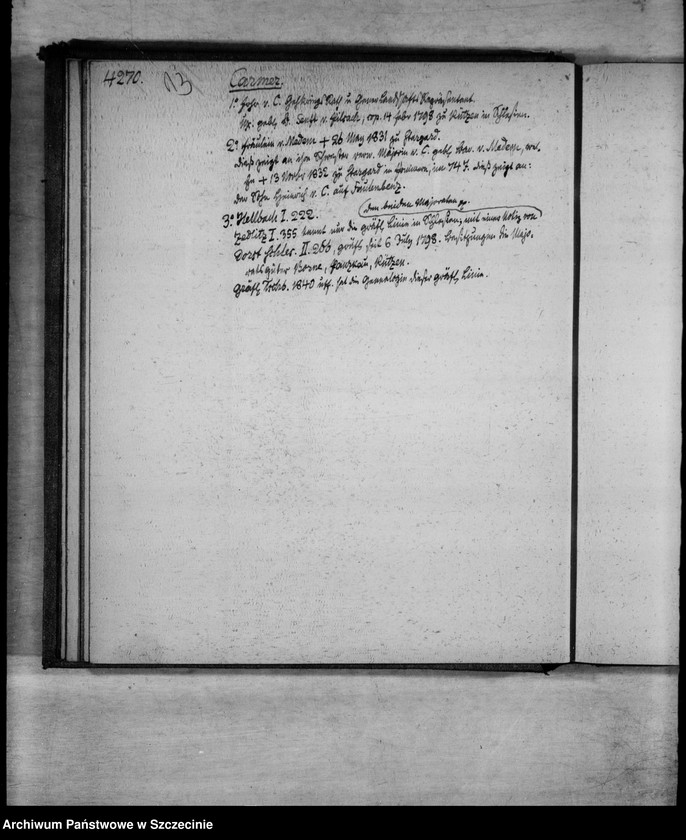 4270. 13 Carmer.
1.° Frhr. v. C. Geh. Kriegs Rath u. General Landschafts Repräsentant.
Ux. geb. v. Senft v. Pilsach, cop. 14 Febr 1798 zu Rützen in Schlesien.
2.° Fräulein v. Madem + 26 May 1831 zu Stargard.
dieß zeigt an ihre Schwester verw. Majorin v. C. geb. v. Madem,
+ 13 Novbr 1832 zu Stargard in Pommern, 74 J. dieß zeigt an:
der Sohn Heinrich v. C. auf Faulenbenz.
den beiden Majoraten pp.
3.° Hellbach I. 222.
Zedlitz I. 355 kennt nur die gräfl. Linie in Schlesien, mit einer Notiz von
Dorst II. 266, gräfl. seit 6 July 1798. Besitzungen die Majo-
ratsgüter Borne, Panzkau, Rützen.
Gräfl. Taschb. 1840 hat die Genealogie dieser gräfl. Linie.
Archiwum Państwowe w Szczecinie